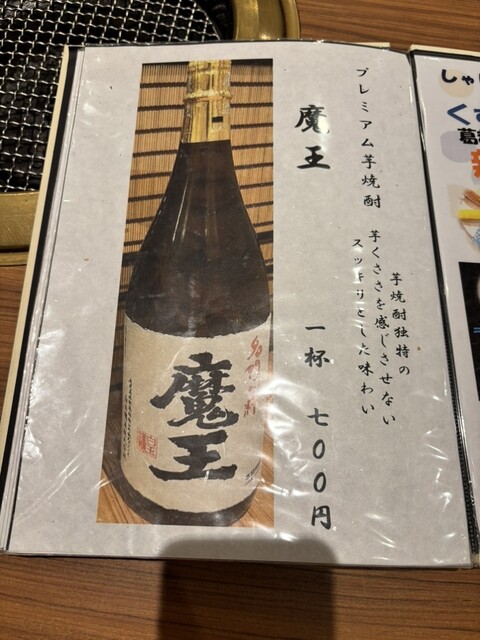 プレミアム芋焼酎
魔王
芋焼酎独特の
芋くささを感じさせない
スッキリとした味わい
一杯 七〇〇円
魔王